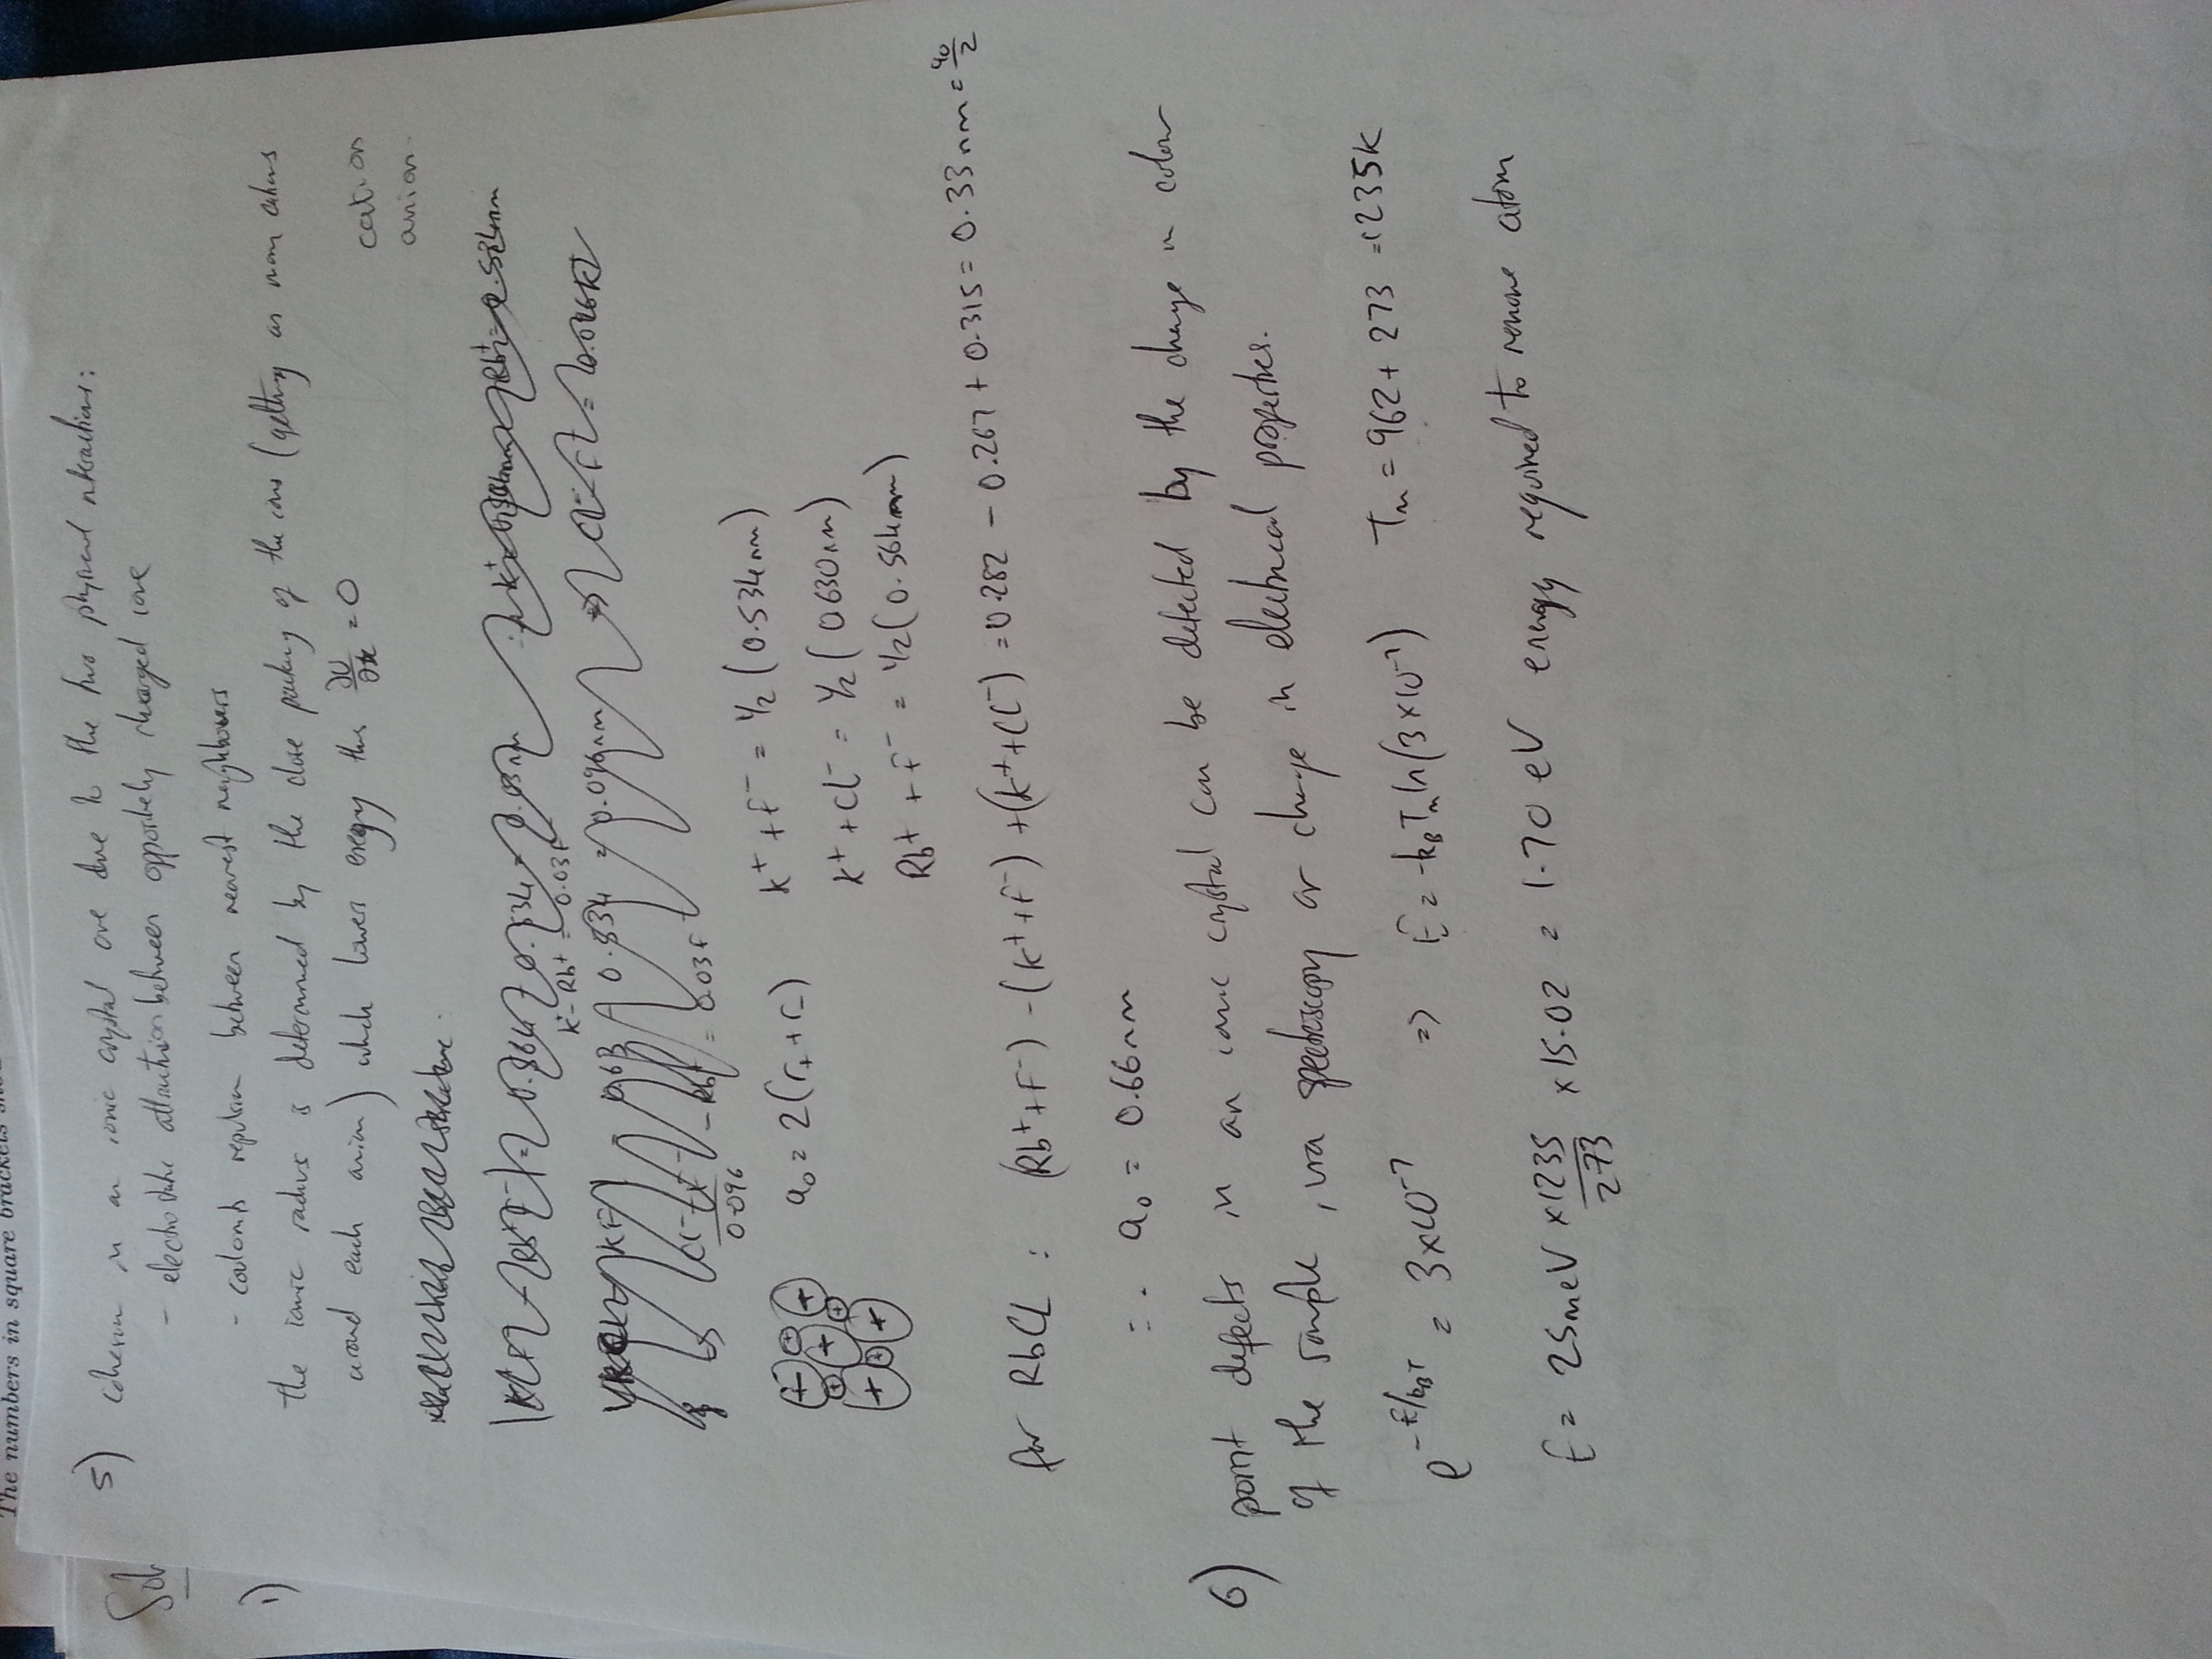 The numbers in square brackets
Sol
1)
5) cohesion in an ionic crystal are due to the two physical interactions:
- electrostatic attraction between oppositely charged ions
- coulomb repulsion between nearest neighbours
the ionic radius is determined by the close packing of the ions (getting as many cations
around each anion) which lowers energy thus ∂U/∂r = 0
cation
anion
= 0.564 - 0.534 = 0.03nm
K⁺ - Rb⁺ = 0.03F⁻
= 0.63 - 0.534 = 0.096nm => Cl⁻ - F⁻ =
- Rb⁺ = 0.03F⁻
0.096
a₀ = 2(r₊ + r₋)
K⁺ + F⁻ = 1/2 (0.534nm)
K⁺ + Cl⁻ = 1/2 (0.630nm)
Rb⁺ + F⁻ = 1/2 (0.564nm)
for RbCl : (Rb⁺ + F⁻) - (K⁺ + F⁻) + (K⁺ + Cl⁻) = 0.282 - 0.267 + 0.315 = 0.33nm = a₀/2
∴ a₀ = 0.66nm
6) point defects in an ionic crystal can be detected by the change in colour
of the sample, via spectroscopy or change in electrical properties.
e^(-E/k_BT) = 3×10⁻⁷ => E = -k_B T_m ln(3×10⁻⁷) T_m = 962 + 273 = 1235K
E = 25meV × 1235/273 × 15.02 = 1.70 eV energy required to remove atom